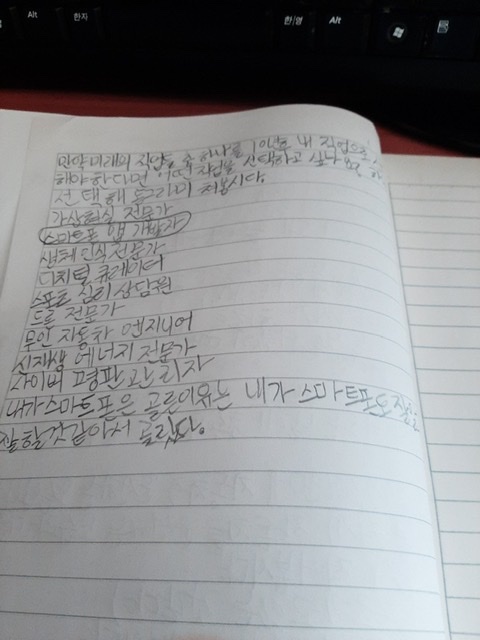 Alt
한자
한/영
Alt
만약 미래의 직업들 중 하나를 10년후 내 직업으로
해야 하다면 어떤 직업을 선택하고 싶나요? 하
선택해 동그라미 쳐봅시다.
가상현실 전문가
스마트폰 앱 개발자
생체 인식 전문가
디지털 큐레이터
스포츠 심리 상담원
드론 전문가
무인 자동차 엔지니어
신재생 에너지 전문가
사이버 평판 관리자
내가 스마트폰은 골른이유는 내가 스마트폰도
잘할것같아서 골랐다.